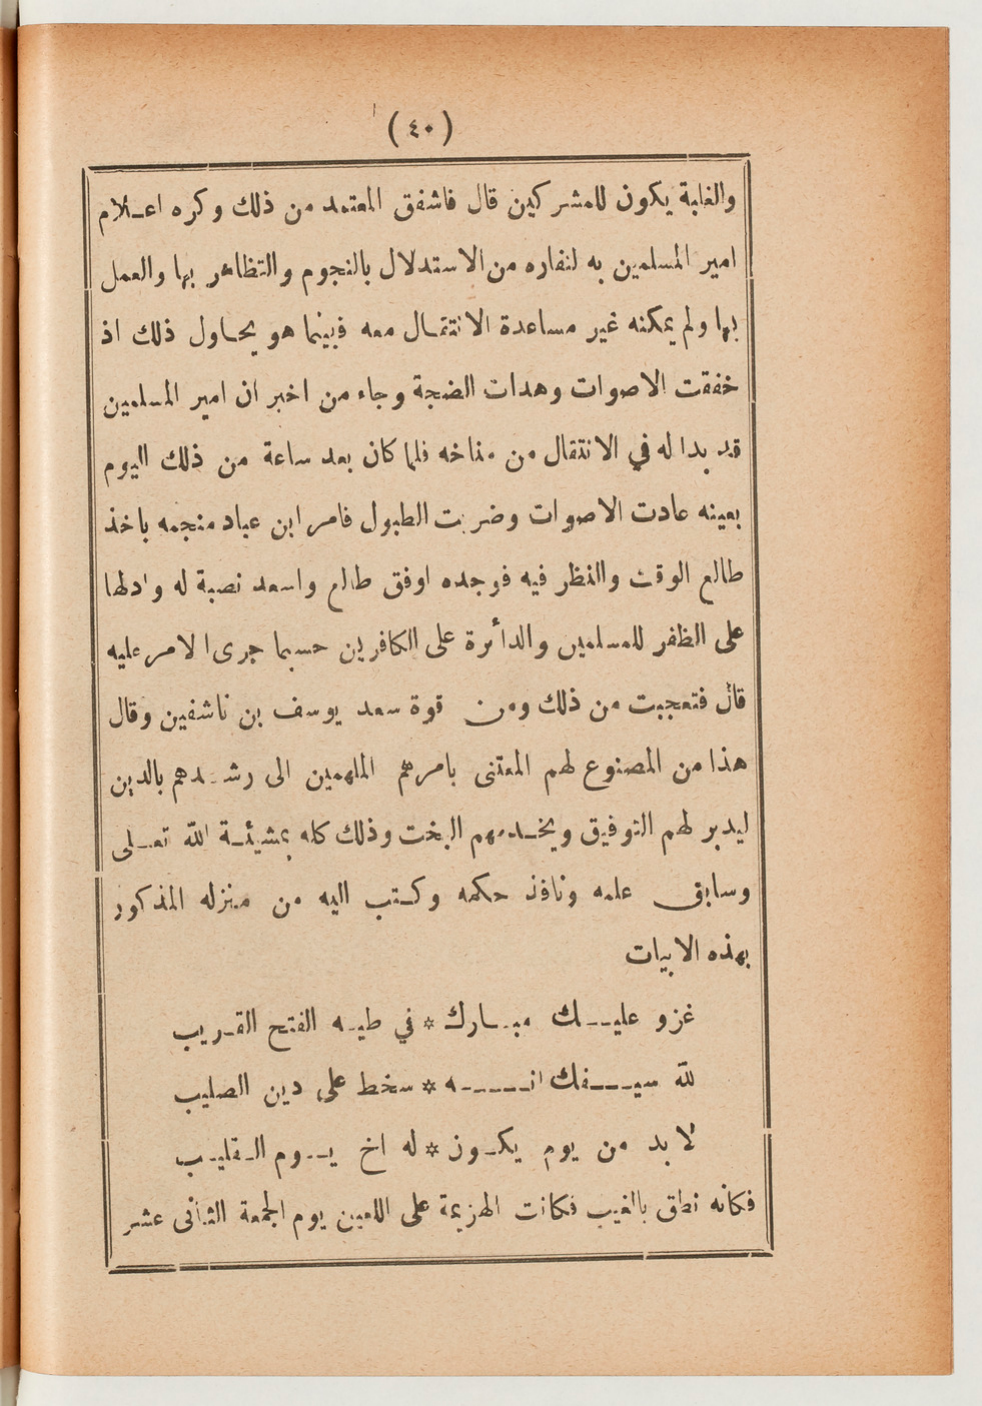 (٤٠)
والغلبة يكون للمشركين قال فاشفق المعتمد من ذلك وكره اعـلام
امير المسلمين به لنفاره من الاستدلال بالنجوم والتظاهر بها والعمل
بها ولم يمكنه غير مساعدة الانتقـال معه فبينما هو يحـاول ذلك اذ
خفقت الاصوات وهدات الضجة وجاء من اخبر ان امير المسلمين
قد بدا له في الانتقال من مناخه فلما كان بعد ساعة من ذلك اليوم
بعينه عادت الاصوات وضربت الطبول فامر ابن عباد منجمه باخذ
طالع الوقت والنظر فيه فوجده اوفق طالع واسعد نصبة له وادلها
على الظفر للمسلمين والدائرة على الكافرين حسبما جرى الامر عليه
قال فتعجبت من ذلك ومن قوة سعد يوسف بن ناشفين وقال
هذا من المصنوع لهم المعتنى بامرهم الملهمين الى رشـدهم بالدين
ليدبر لهم التوفيق ويخـدمهم البخت وذلك كله بمشيئـة الله تعـلى
وسابق علمه ونافذ حكمه وكـتب اليه من منزله المذكور
بهذه الابيات
غزو عليـــك مبـــارك * في طيـه الفتح القـريب
لله سيـــفك انـــــه * سخط على دين الصليب
لا بد من يوم يكـون * له اخ يـــوم الـقليـب
فكانه نطق بالغيب فكانت الهزيمة على اللعين يوم الجمعة الثانى عشر